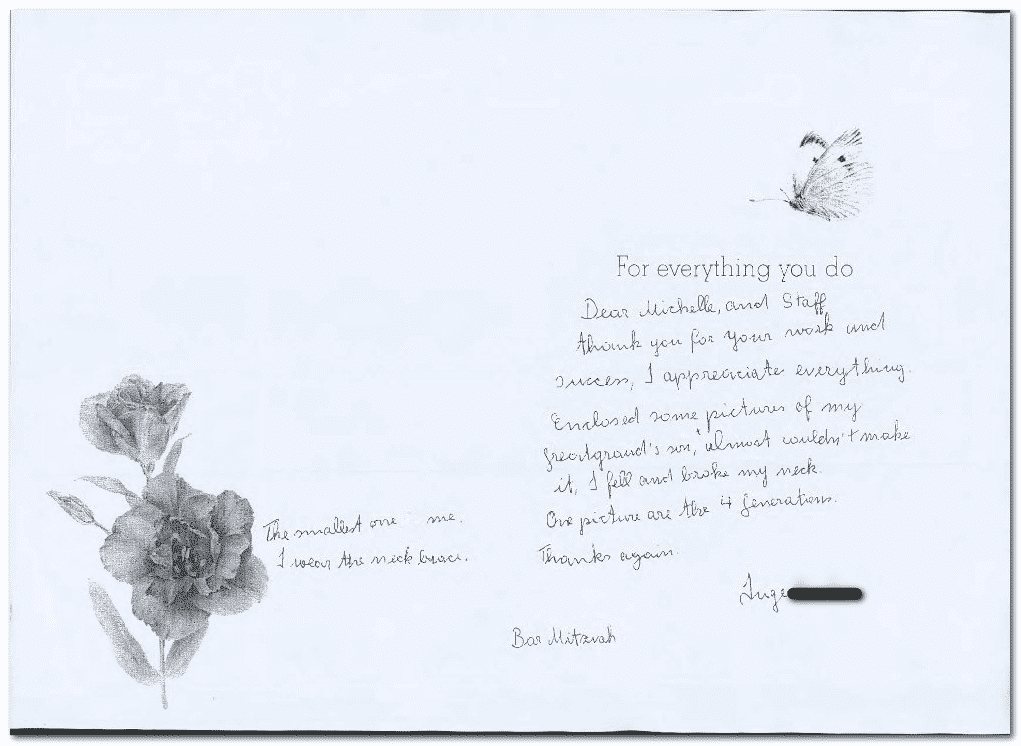 For everything you do
Dear Michelle, and Staff
thank you for your work and
success, I appreaciate everything.
Enclosed some pictures of my
greatgrand's son, almost couldn't make
it, I fell and broke my neck.
One picture are the 4 generations.
Thanks again.
Inge
Bar Mitzvah
The smallest one me.
I wear the neck brace.